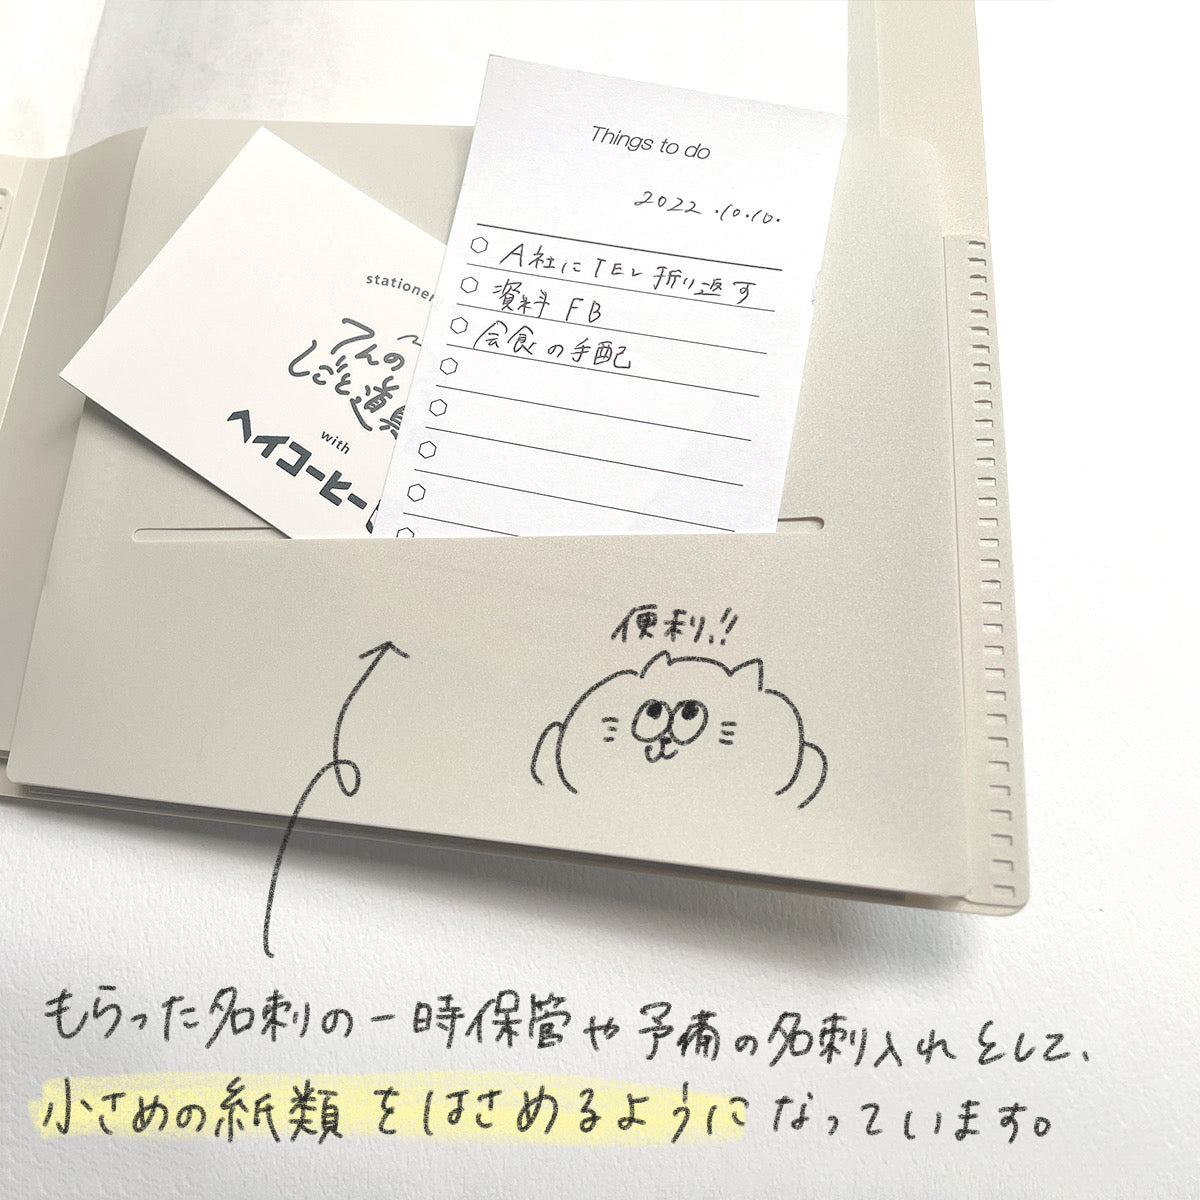 Things to do
2022.10.10.
A社にTEL折り返す
資料 FB
会食の手配
てんの
しごと道具
with
ヘイコーヒー
便利!!
もらった名刺の一時保管や予備の名刺入れとして、
小さめの紙類をはさめるようになっています。